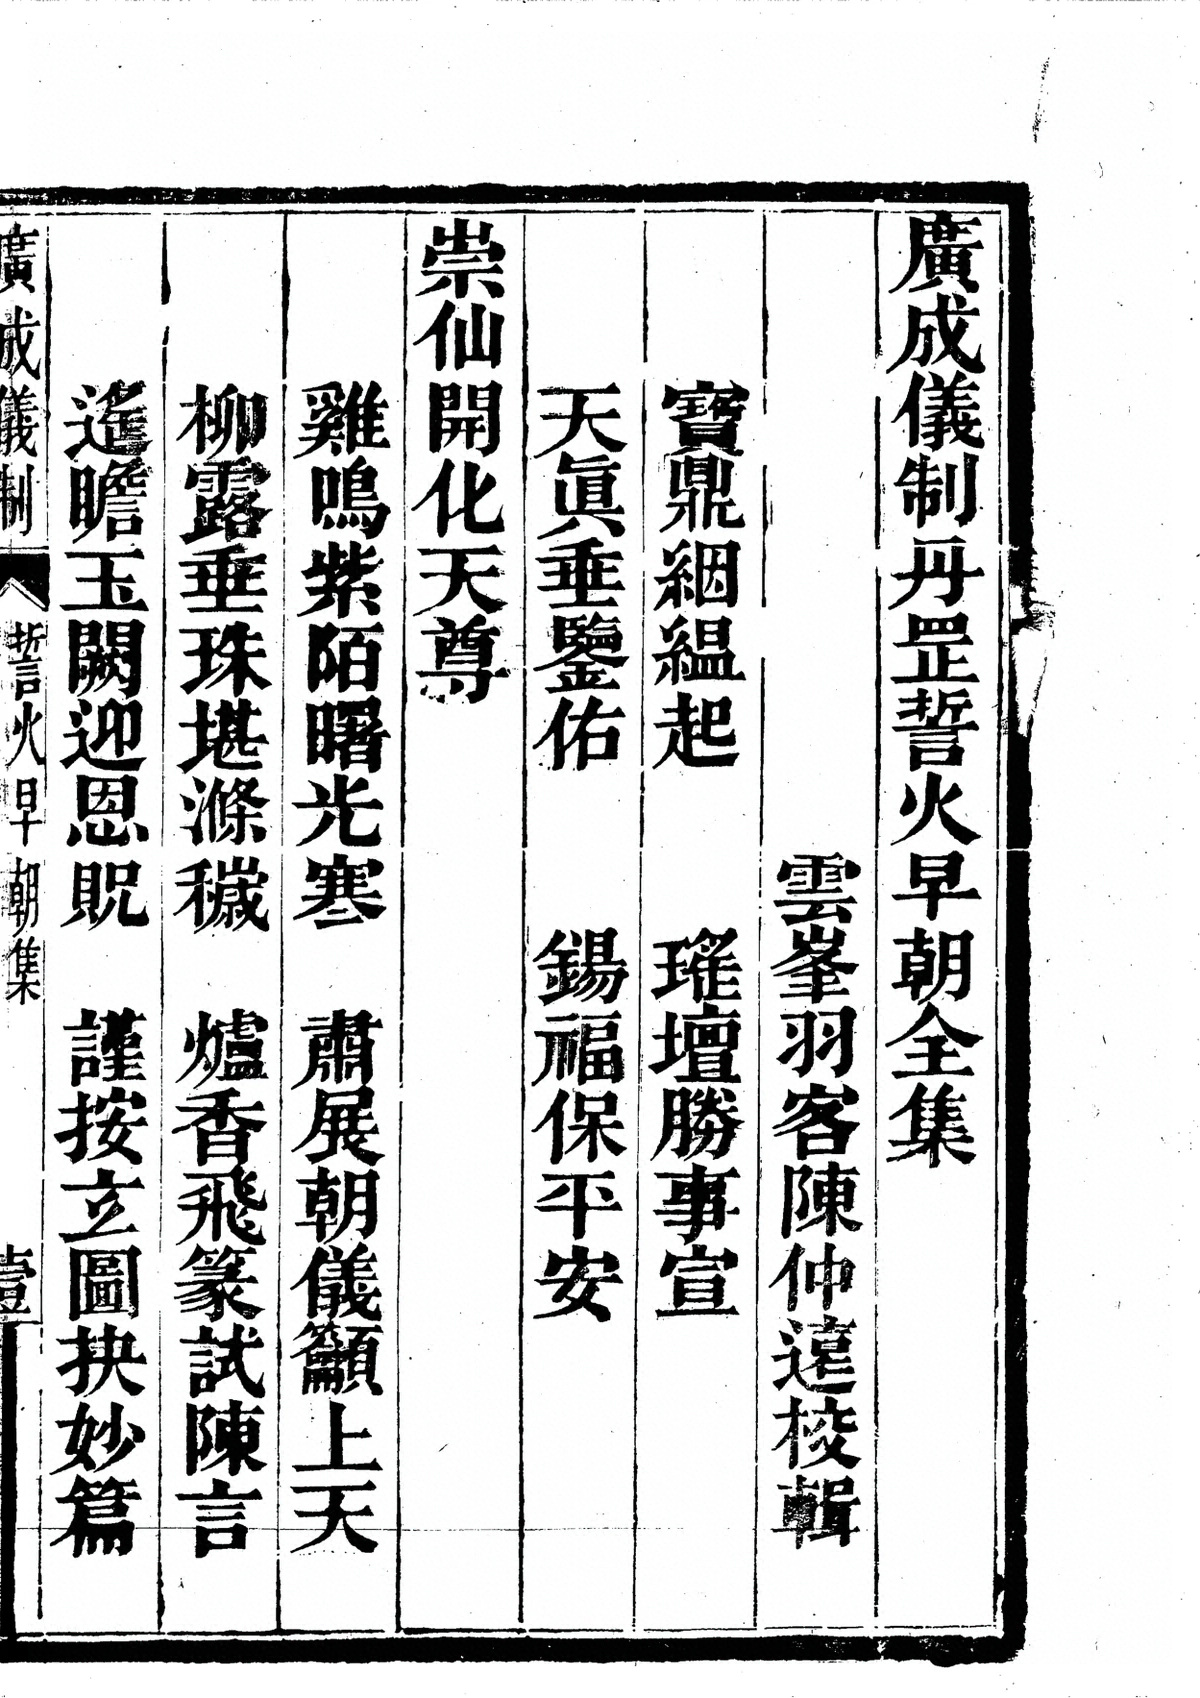 廣成儀制丹罡誓火早朝全集
雲峯羽客陳仲遠校輯
寶鼎絪縕起　璀壇勝事宣
天眞垂鑒佑　錫福保平安
崇仙開化天尊
雞鳴紫陌曙光寒　肅展朝儀籲上天
柳露垂珠堪滌穢　爐香飛篆試陳言
遙瞻玉闕迎恩貺　謹按立圖抉妙篇
廣成儀制　誓火早朝集　壹